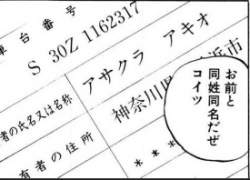 台番号
S 30Z 1162317
者の氏名又は名称
アサクラ アキオ
有者の住所
神奈川
浜市
お前と
同姓同名だぜ
コイツ